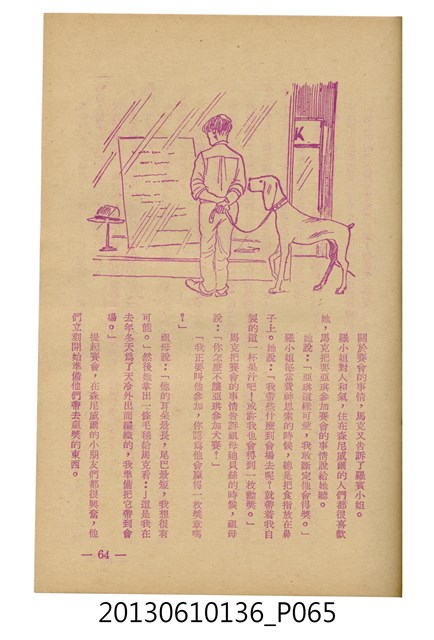 K
關於賽會的事情，馬克又告訴了羅賓小姐。
羅小姐對人和氣，住在森尼威爾的人們都很喜歡
她，馬克把要亞琪參加賽會的事情說給她聽。
她說：「亞琪這樣可愛，我敢斷定他會得獎。」
羅小姐每當費神思索的時候，總是把食指放在鼻
子上。她說：「我帶些什麼到會場去呢？就帶着我自
製的這一杯果汁吧！或許我也會得到一枚勳獎。」
馬克把賽會的事情告訴祖母絲的時候，祖母
說：「你怎麼不讓亞琪參加犬賽？」
「我正要叫他參加，你認為他會贏得一枚獎章嗎
？」
祖母說：「他的耳朵最長，尾巴最短，我想很有
可能。」然後她拿出一條毛毯給馬克看：「這是我在
去年冬天為了天冷外出而編織的，我準備把它帶到會
場。」
提起賽會，在森尼威爾的小朋友們都很興奮，他
們立刻開始準備他們帶去競獎的東西。
— 64 —
20130610136_P065